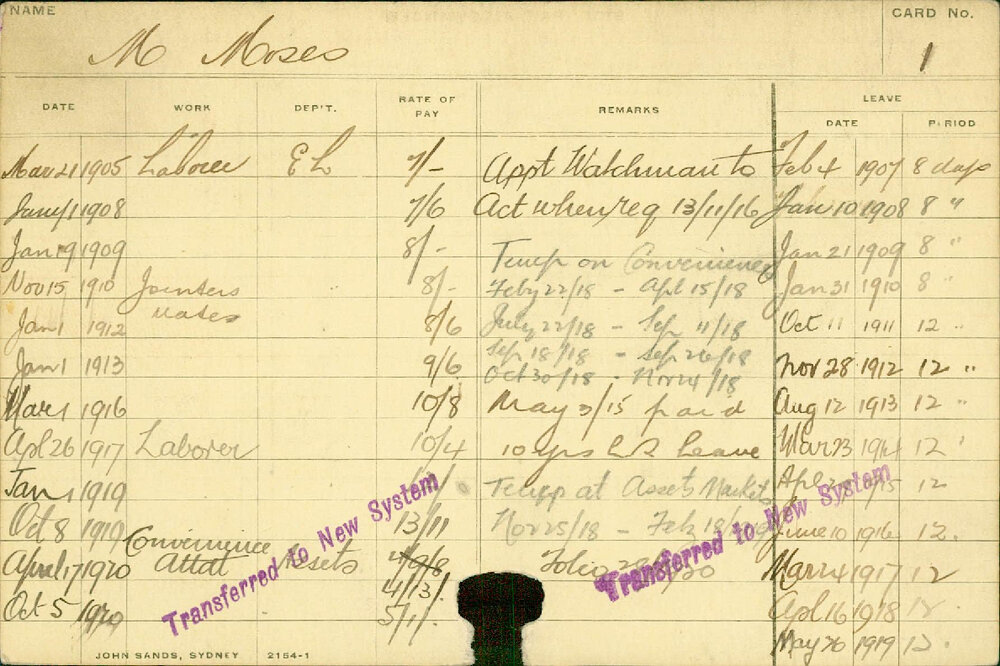 NAME
CARD No.
M Moses
1
DATE WORK DEP'T. RATE OF PAY REMARKS LEAVE
DATE PERIOD
Mar 21 1905 Laborer E L 7/- Appt Watchman to Feb 4 1907 8 days
Jany 1 1908 7/6 Act when req 13/11/16 Jan 10 1908 8 "
Jan 19 1909 8/- Temp on Conveniences Jan 21 1909 8 "
Nov 15 1910 Jointers 8/- Feby 22/18 - Apl 15/18 Jan 31 1910 8 "
mates
Jan 1 1912 8/6 July 22/18 - Sep 11/18 Oct 11 1911 12 "
Sep 18/18 - Sep 26/18
Jan 1 1913 9/6 Oct 30/18 - Nov 4/18 Nov 28 1912 12 "
Mar 1 1916 10/8 May 3/15 paid Aug 12 1913 12 "
Apl 26 1917 Laborer 10/4 10 yrs L S Leave Mar 23 1914 12 "
Jan 1 1919 Temp at Assets Markets Apl 1915 12
Oct 8 1919 13/11 Nov 25/18 - Feb 18/1919 June 10 1916 12.
Convenience
April 17 1920 Attdt Assets 4/9/8 Folio Mar 24 1917 12
4/13/.
Oct 5 1920 5/1/. Apl 16 1918 12.
May 26 1919 12.
Transferred to New System
Transferred to New System
JOHN SANDS, SYDNEY 2154-1